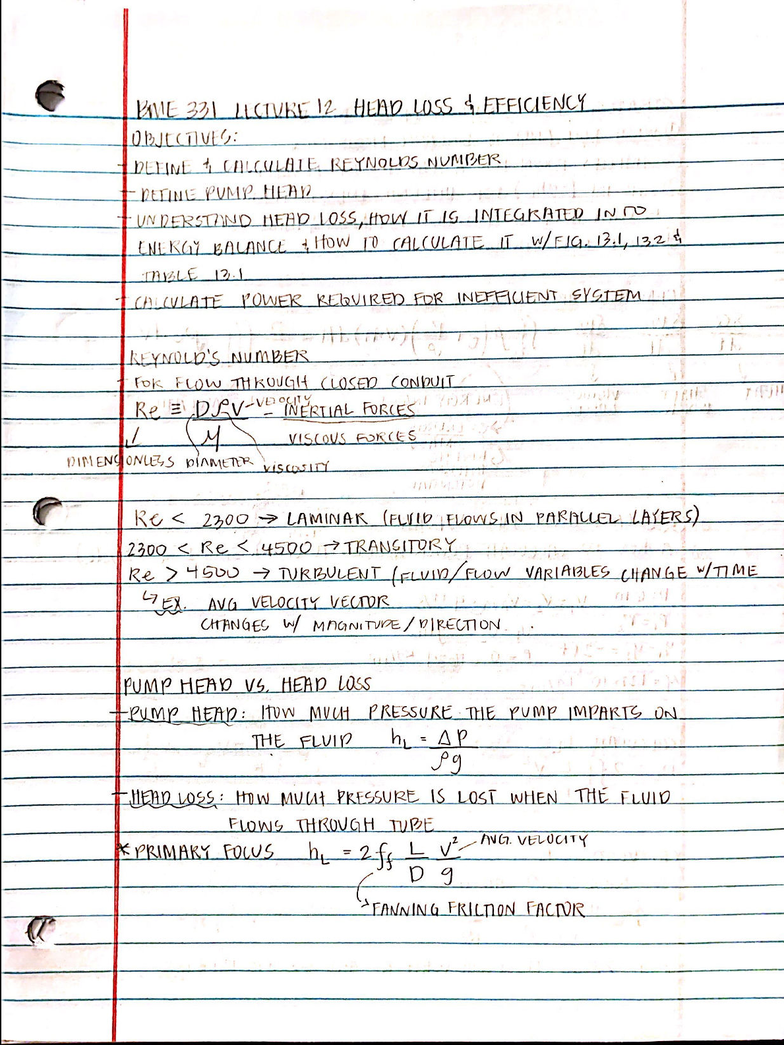 BME 331 LECTURE 12 HEAD LOSS & EFFICIENCY
OBJECTIVES:
- DEFINE & CALCULATE REYNOLDS NUMBER
- DEFINE PUMP HEAD
- UNDERSTAND HEAD LOSS, HOW IT IS INTEGRATED INTO
ENERGY BALANCE & HOW TO CALCULATE IT W/FIG. 13.1, 13.2 &
TABLE 13.1
- CALCULATE POWER REQUIRED FOR INEFFICIENT SYSTEM
REYNOLD'S NUMBER
- FOR FLOW THROUGH CLOSED CONDUIT
Re ≡ DρV - VELOCITY = INERTIAL FORCES
μ VISCOUS FORCES
DIMENSIONLESS DIAMETER VISCOSITY
Re < 2300 → LAMINAR (FLUID FLOWS IN PARALLEL LAYERS)
2300 < Re < 4500 → TRANSITORY
Re > 4500 → TURBULENT (FLUID/FLOW VARIABLES CHANGE W/TIME
↳ EX. AVG VELOCITY VECTOR
CHANGES W/ MAGNITUDE/DIRECTION .
PUMP HEAD VS. HEAD LOSS
- PUMP HEAD: HOW MUCH PRESSURE THE PUMP IMPARTS ON
THE FLUID h_L = ΔP
ρg
- HEAD LOSS: HOW MUCH PRESSURE IS LOST WHEN THE FLUID
FLOWS THROUGH TUBE
* PRIMARY FOCUS h_L = 2 f_f L V² - AVG. VELOCITY
D g
↳ FANNING FRICTION FACTOR